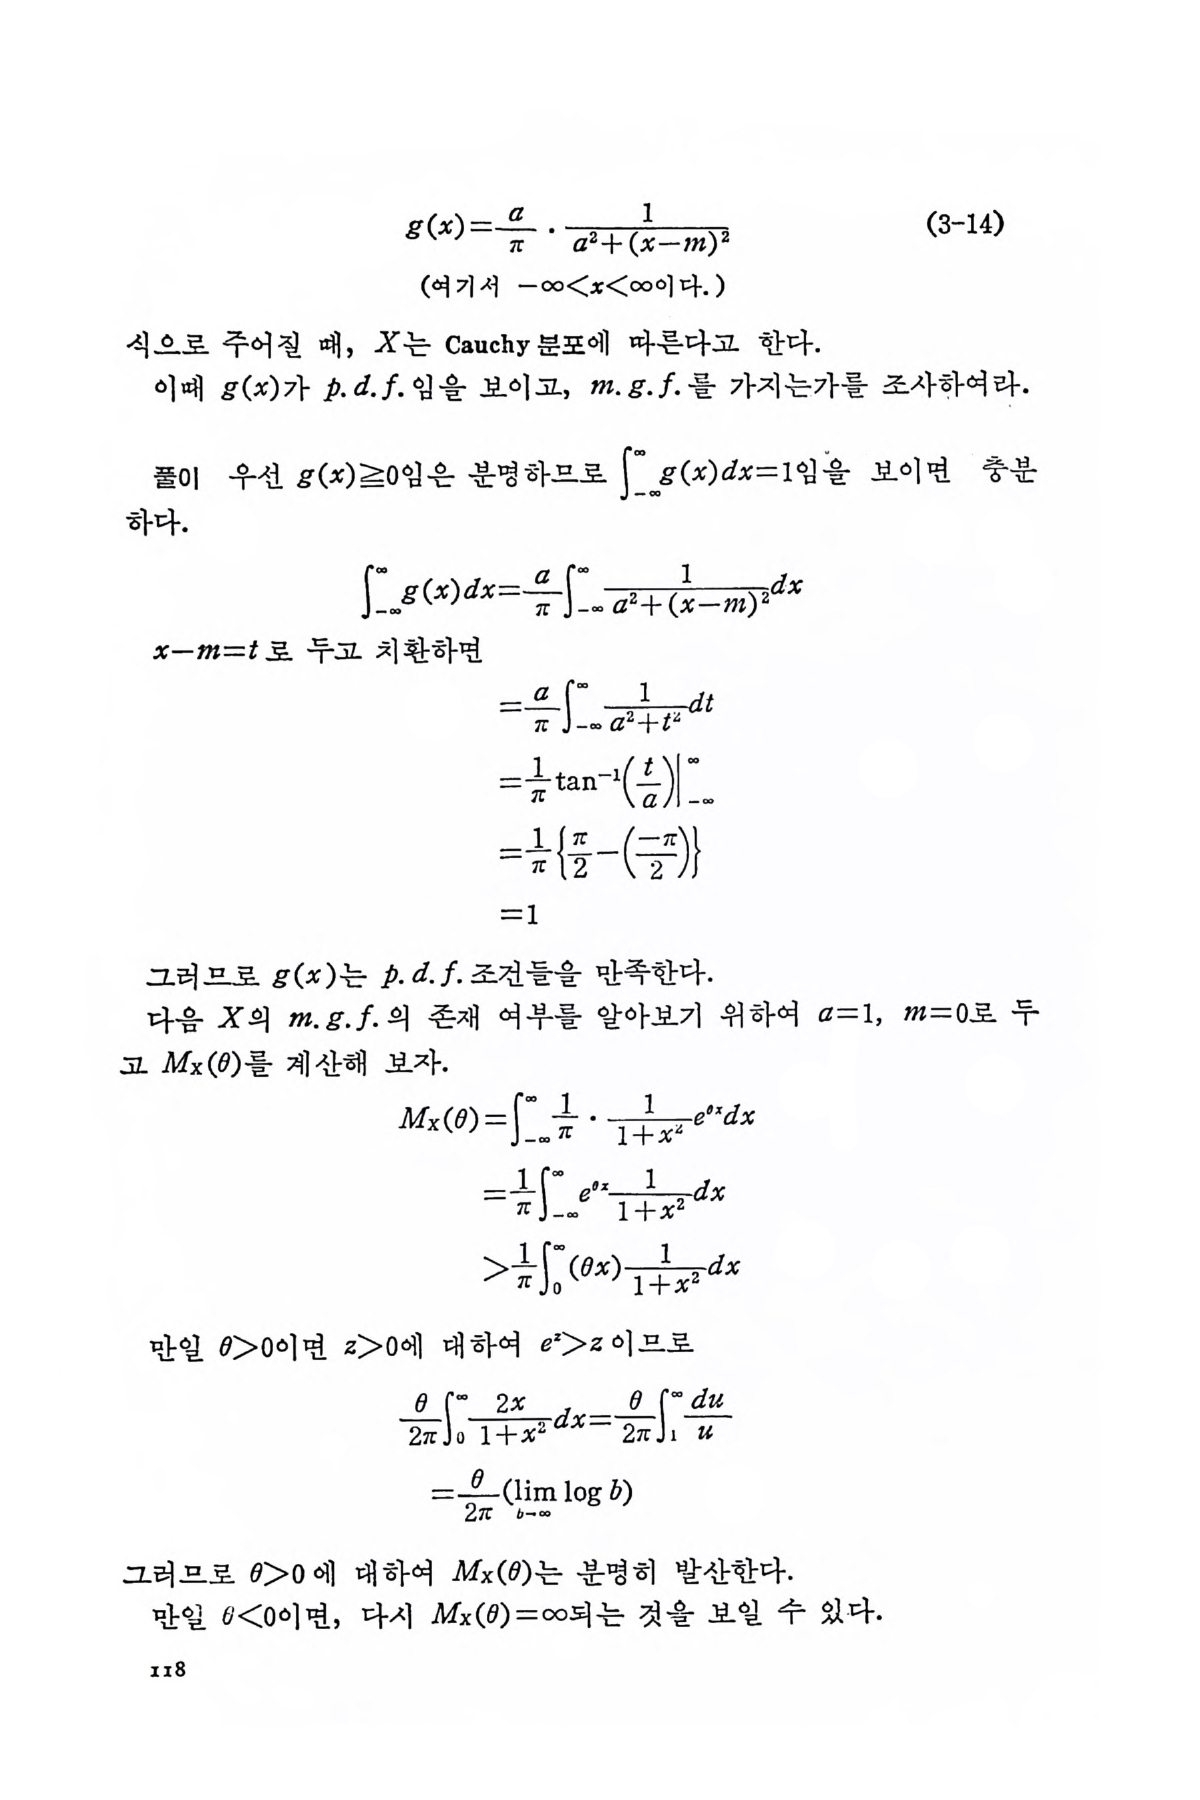 g(x)=a/π · 1/(a²+(x−m)²) (3-14)
(여기서 −∞<x<∞이다.)
식으로 주어질 때, X는 Cauchy 분포에 따른다고 한다.
이때 g(x)가 p.d.f.임을 보이고, m.g.f.를 가지는가를 조사하여라.
풀이 우선 g(x)≧0임은 분명하므로 ∫_{−∞}^{∞} g(x)dx=1임을 보이면 충분
하다.
∫_{−∞}^{∞} g(x)dx=a/π ∫_{−∞}^{∞} 1/(a²+(x−m)²) dx
x−m=t로 두고 치환하면
=a/π ∫_{−∞}^{∞} 1/(a²+t²) dt
=1/π tan⁻¹(t/a)|_{−∞}^{∞}
=1/π {π/2−(−π/2)}
=1
그러므로 g(x)는 p.d.f.조건들을 만족한다.
다음 X의 m.g.f.의 존재 여부를 알아보기 위하여 a=1, m=0로 두
고 Mx(θ)를 계산해 보자.
Mx(θ)=∫_{−∞}^{∞} 1/π · 1/(1+x²) e^{θx}dx
=1/π ∫_{−∞}^{∞} e^{θx} 1/(1+x²) dx
>1/π ∫_{0}^{∞} (θx) 1/(1+x²) dx
만일 θ>0이면 z>0에 대하여 e^z>z이므로
θ/2π ∫_{0}^{∞} 2x/(1+x²) dx=θ/2π ∫_{1}^{∞} du/u
=θ/2π (lim_{b→∞} log b)
그러므로 θ>0에 대하여 Mx(θ)는 분명히 발산한다.
만일 θ<0이면, 다시 Mx(θ)=∞되는 것을 보일 수 있다.
118